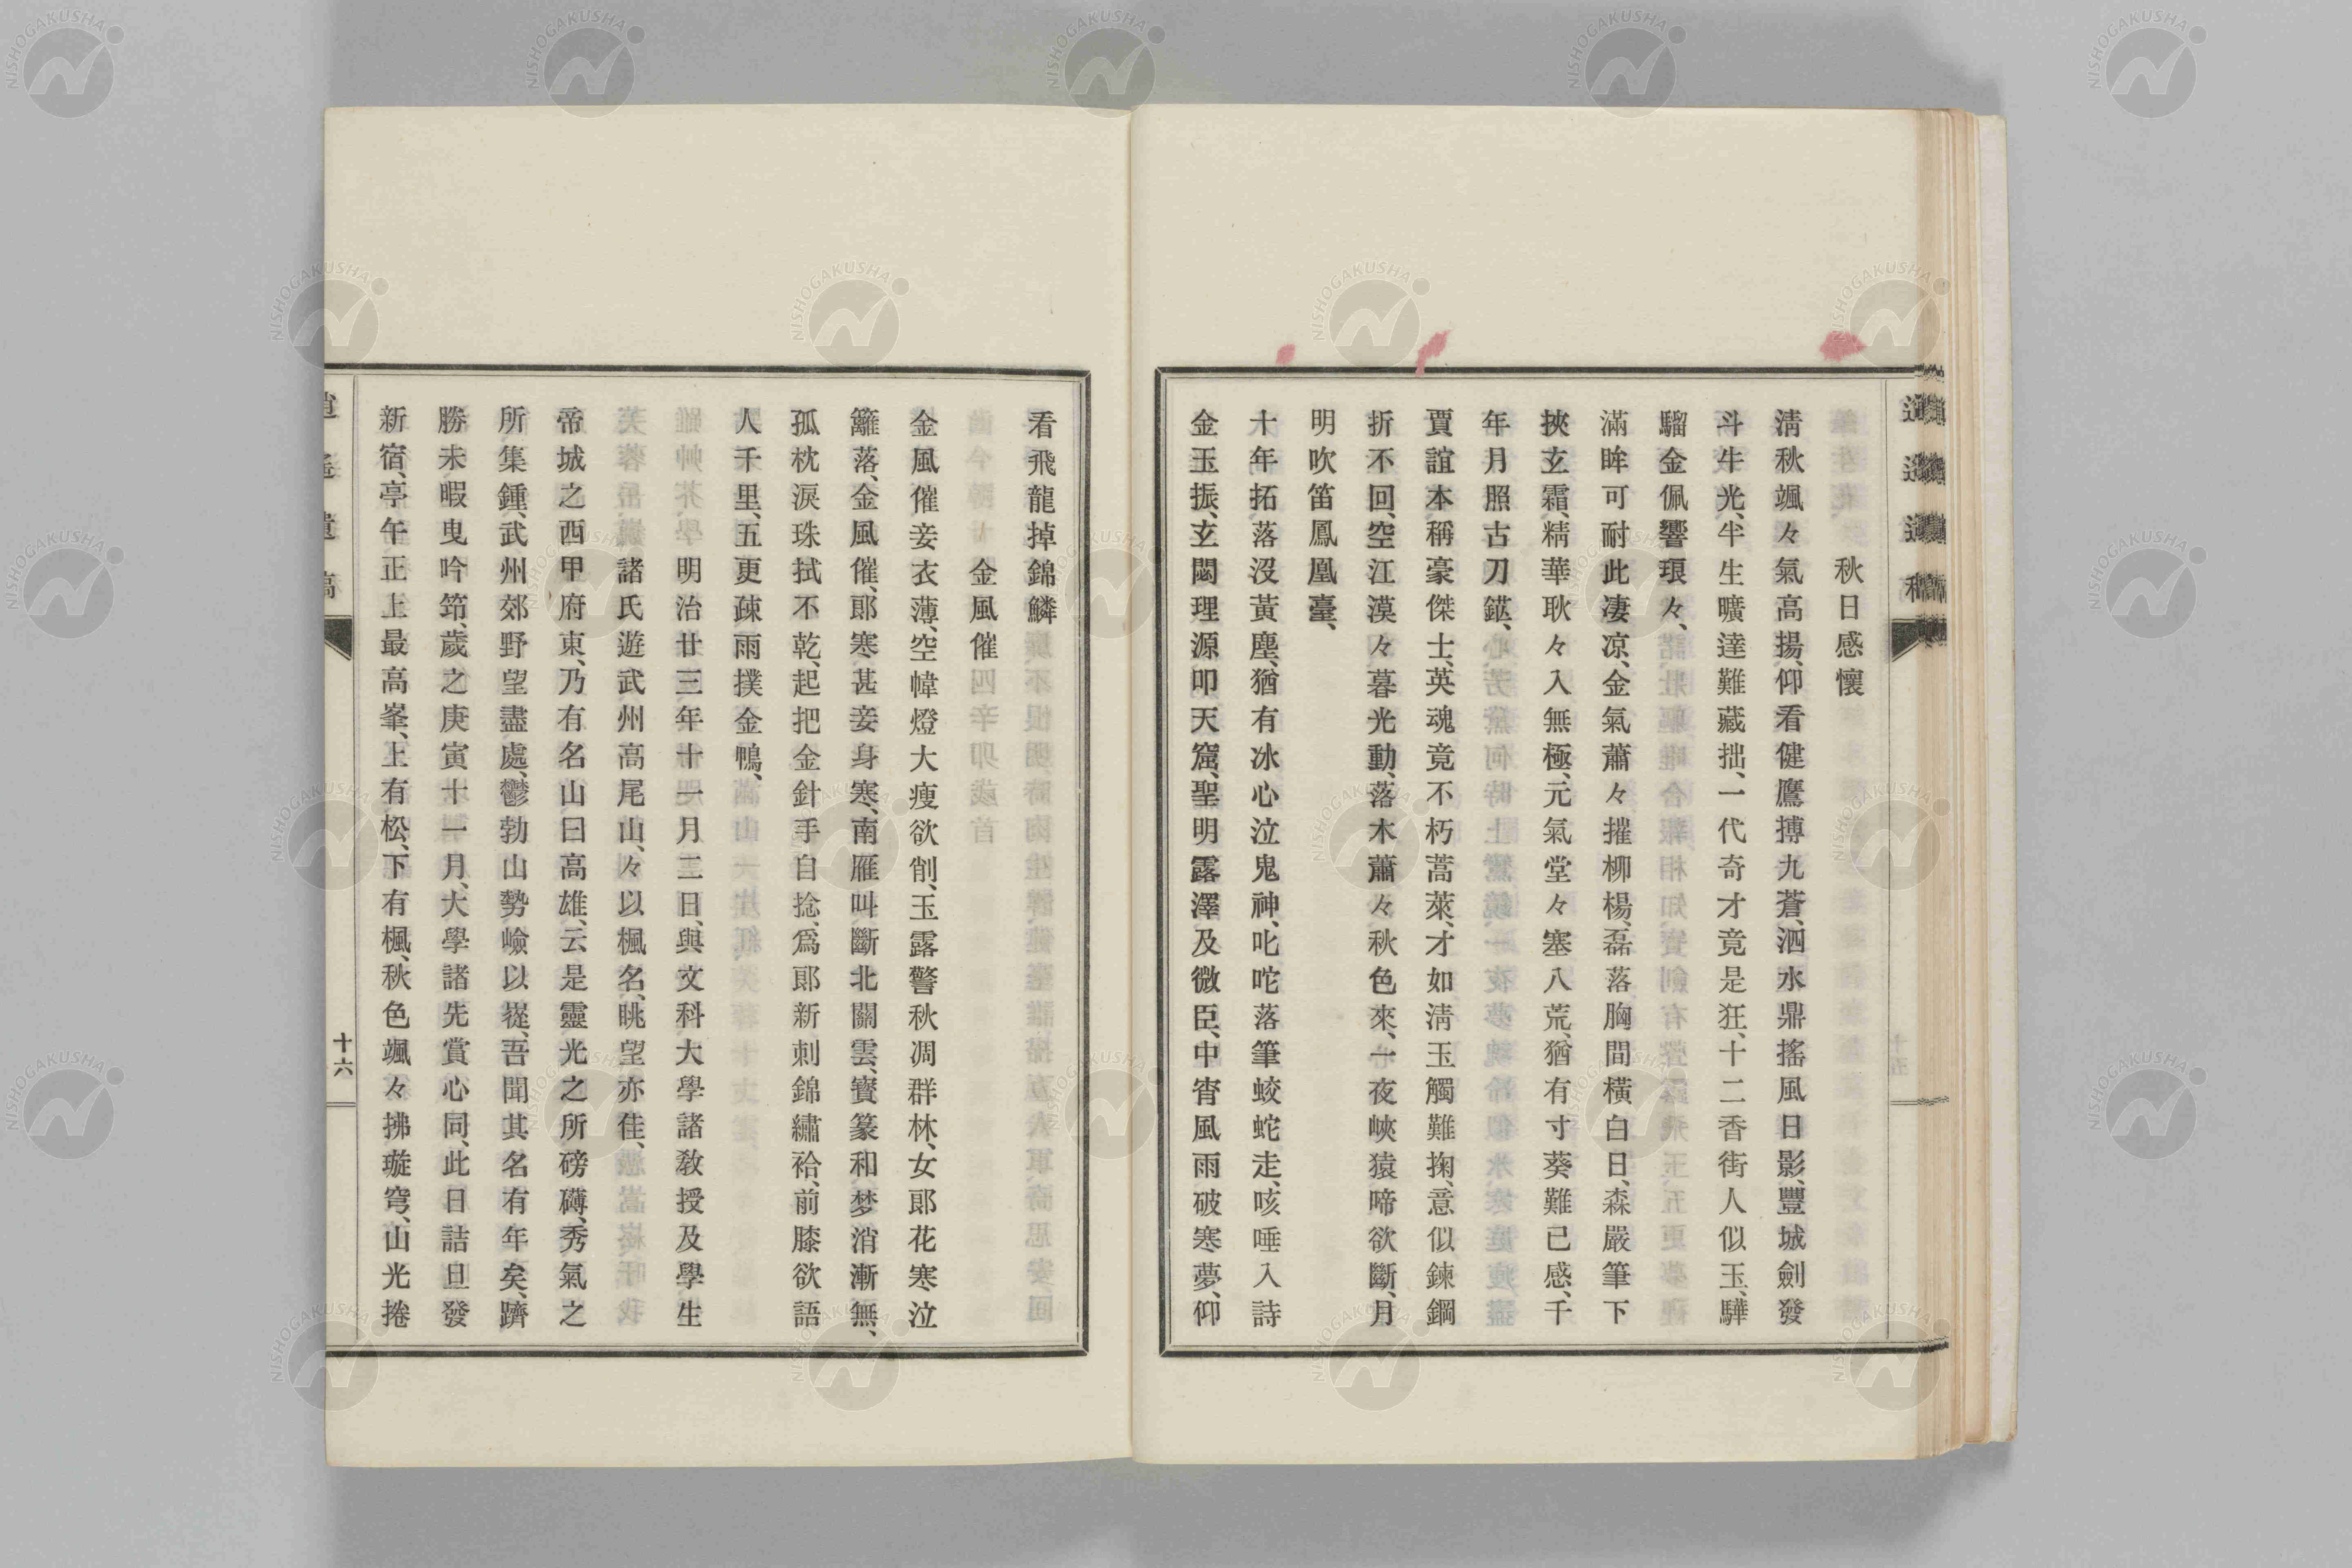 秋日感懷
淸秋颯々氣高揚、仰看健鷹搏九蒼、泗水鼎搖風日影、豐城劍發
斗牛光、半生曠達難藏拙、一代奇才竟是狂、十二香街人似玉、驊
騮金佩響琅々、
滿眸可耐此凄凉、金氣蕭々摧柳楊、磊落胸間橫白日、森嚴筆下
挾玄霜、精華耿々入無極、元氣堂々塞八荒、猶有寸葵難已感、千
年月照古刀鋩、
賈誼本稱豪傑士、英魂竟不朽蒿萊、才如淸玉觸難掬、意似鍊鋼
折不回、空江漠々暮光動、落木蕭々秋色來、一夜峽猿啼欲斷、月
明吹笛鳳凰臺、
十年拓落沒黃塵、猶有冰心泣鬼神、叱咤落筆蛟蛇走、咳唾入詩
金玉振、玄閟理源叩天窟、聖明露澤及微臣、中宵風雨破寒夢、仰
看飛龍掉錦鱗
金風催
金風催妾衣薄、空幃燈大瘦欲削、玉露警秋凋群林、女郞花寒泣
籬落、金風催、郞寒甚妾身寒、南雁叫斷北關雲、寳篆和梦消漸無、
孤枕淚珠拭不乾、起把金針手自捻、爲郞新刺錦繡袷、前膝欲語
人千里、五更疎雨撲金鴨、
明治廿三年十一月二日、與文科大學諸敎授及學生
諸氏遊武州高尾山、々以楓名、眺望亦佳、
帝城之西甲府東、乃有名山曰高雄、云是靈光之所磅礴、秀氣之
所集鍾、武州郊野望盡處、鬱勃山勢嶮以嵷、吾聞其名有年矣、躋
勝未暇曳吟筇、歲之庚寅十一月、大學諸先賞心同、此日詰旦發
新宿、亭午正上最高峯、上有松、下有楓、秋色颯々拂璇穹、山光捲
逍遙遺稿
十六